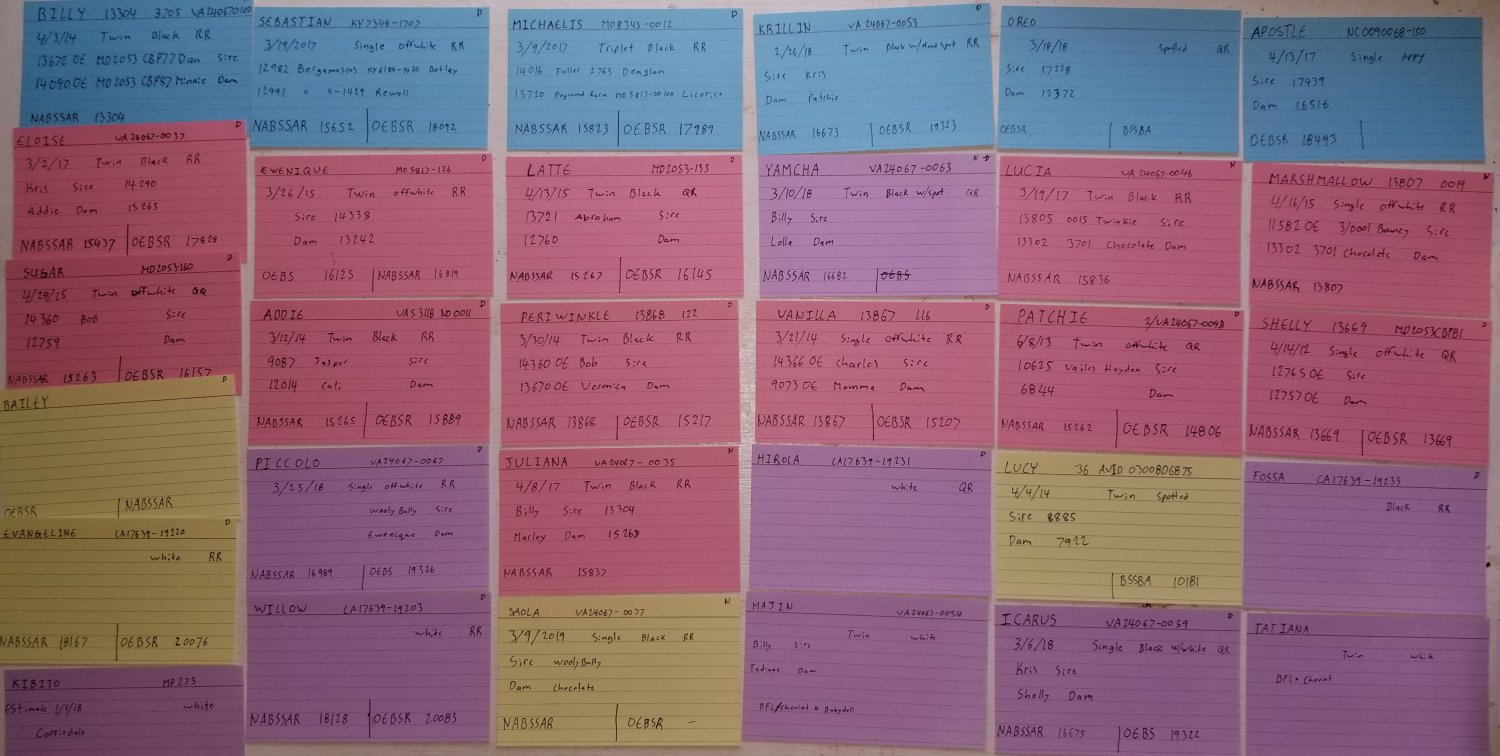 BILLY 13304 3705 VA240670100
4/3/14 Twin Black RR
13672 OE MD2053 CBP77 Dan Sire
14090 OE MD2053 CBP87 Minnie Dam
NABSSAR 13304
D
SEBASTIAN KY7348-1707
3/19/2017 Single offwhite RR
12982 Bergamascos KY6184-1420 Botley
12991 " "-1429 Rewell
NABSSAR 15652 OEBSR 18092
D
MICHAELIS MO8345-0012
3/9/2017 Triplet Black RR
14016 Fuller 2765 Deaglan
15720 Dogwood Farm MO5817-00100 Licorice
NABSSAR 15823 OEBSR 17989
D
KRILLIN VA 24067-0053
2/26/18 Twin Black w/Head spot RR
Sire Kris
Dam Patchie
NABSSAR 16673 OEBSR 19323
OREO
3/18/18 Spotted QR
Sire 17228
Dam 12372
OEBSR BSSBA
D
APOSTLE NC0090068-150
4/13/17 Single APPY
Sire 17439
Dam 16516
OEBSR 18493
D
ELOISE VA 24067-0037
3/2/17 Twin Black RR
Kris Sire 14290
Addie Dam 15265
NABSSAR 15437 OEBSR 17828
D
EWENIQUE MO5817-126
3/26/15 Twin offwhite RR
Sire 14338
Dam 13242
OEBS 16125 NABSSAR 16819
D
LATTE MD2053-155
4/13/15 Twin Black QR
13721 Abraham Sire
12760 Dam
NABSSAR 15267 OEBSR 16145
N D
YAMCHA VA24067-0063
3/10/18 Twin Black w/spot QR
Billy Sire
Lolla Dam
NABSSAR 16682 OEBS
N
LUCIA VA 24067-0046
3/19/17 Twin Black RR
13805 0015 Twinkie Sire
13302 3701 Chocolate Dam
NABSSAR 15836
MARSHMALLOW 13807 0019
4/16/15 Single offwhite RR
11582 OE 3/0001 Bouncy Sire
13302 3701 Chocolate Dam
NABSSAR 13807
D
SUGAR MD2053-160
4/29/15 Twin offwhite QQ
14360 Bob Sire
12759 Dam
NABSSAR 15263 OEBSR 16157
D
ADDIE VA53118 ND0011
3/12/14 Twin Black RR
9087 Jasper Sire
12014 Cali Dam
NABSSAR 15265 OEBSR 15889
D
PERIWINKLE 13868 122
3/30/14 Twin Black RR
14360 OE Bob Sire
13670 OE Veronica Dam
NABSSAR 13868 OEBSR 15217
D
VANILLA 13867 116
3/21/14 Single offwhite RR
14366 OE Charles Sire
9073 OE Momma Dam
NABSSAR 13867 OEBSR 15207
D
PATCHIE 2/VA24067-0098
6/8/13 Twin offwhite QR
10625 Vailes Hayden Sire
6844 Dam
NABSSAR 15262 OEBSR 14806
D
SHELLY 13669 MD2053CBP81
4/14/12 Single offwhite QR
12765 OE Sire
12757 OE Dam
NABSSAR 13669 OEBSR 13669
D
BAILEY
OEBSR NABSSAR
D
PICCOLO VA24067-0067
3/25/18 Single offwhite RR
WoolyBully Sire
Ewenique Dam
NABSSAR 16989 OEBS 19326
N
JULIANA VA 24067-0035
4/8/17 Twin Black RR
Billy Sire 13304
Marley Dam 15268
NABSSAR 15837
D
HIROLA CA17639-19231
white QR
LUCY 36 AVID 0300806875
4/4/14 Twin Spotted
Sire 8885
Dam 7922
BSSBA 10181
D
FOSSA CA17639-19233
Black RR
D
EVANGELINE CA17639-19220
white RR
NABSSAR 18167 OEBSR 20076
D
WILLOW CA17639-19203
white RR
NABSSAR 18128 OEBSR 20083
N
SAOLA VA24067-0077
3/9/2019 Single Black RR
Sire WoolyBully
Dam Chocolate
NABSSAR OEBSR -
MAJIN VA24067-0054
Twin white
Billy Sire
Tatiana Dam
BFL/Cheviot x Babydoll
D
ICARUS VA24067-0059
3/6/18 Single Black w/white QR
Kris Sire
Shelly Dam
NABSSAR 16675 OEBS 19322
TATIANA
Twin white
BFL x Cheviot
KIBITO MP273
Estimate 1/1/18 white
Corriedale